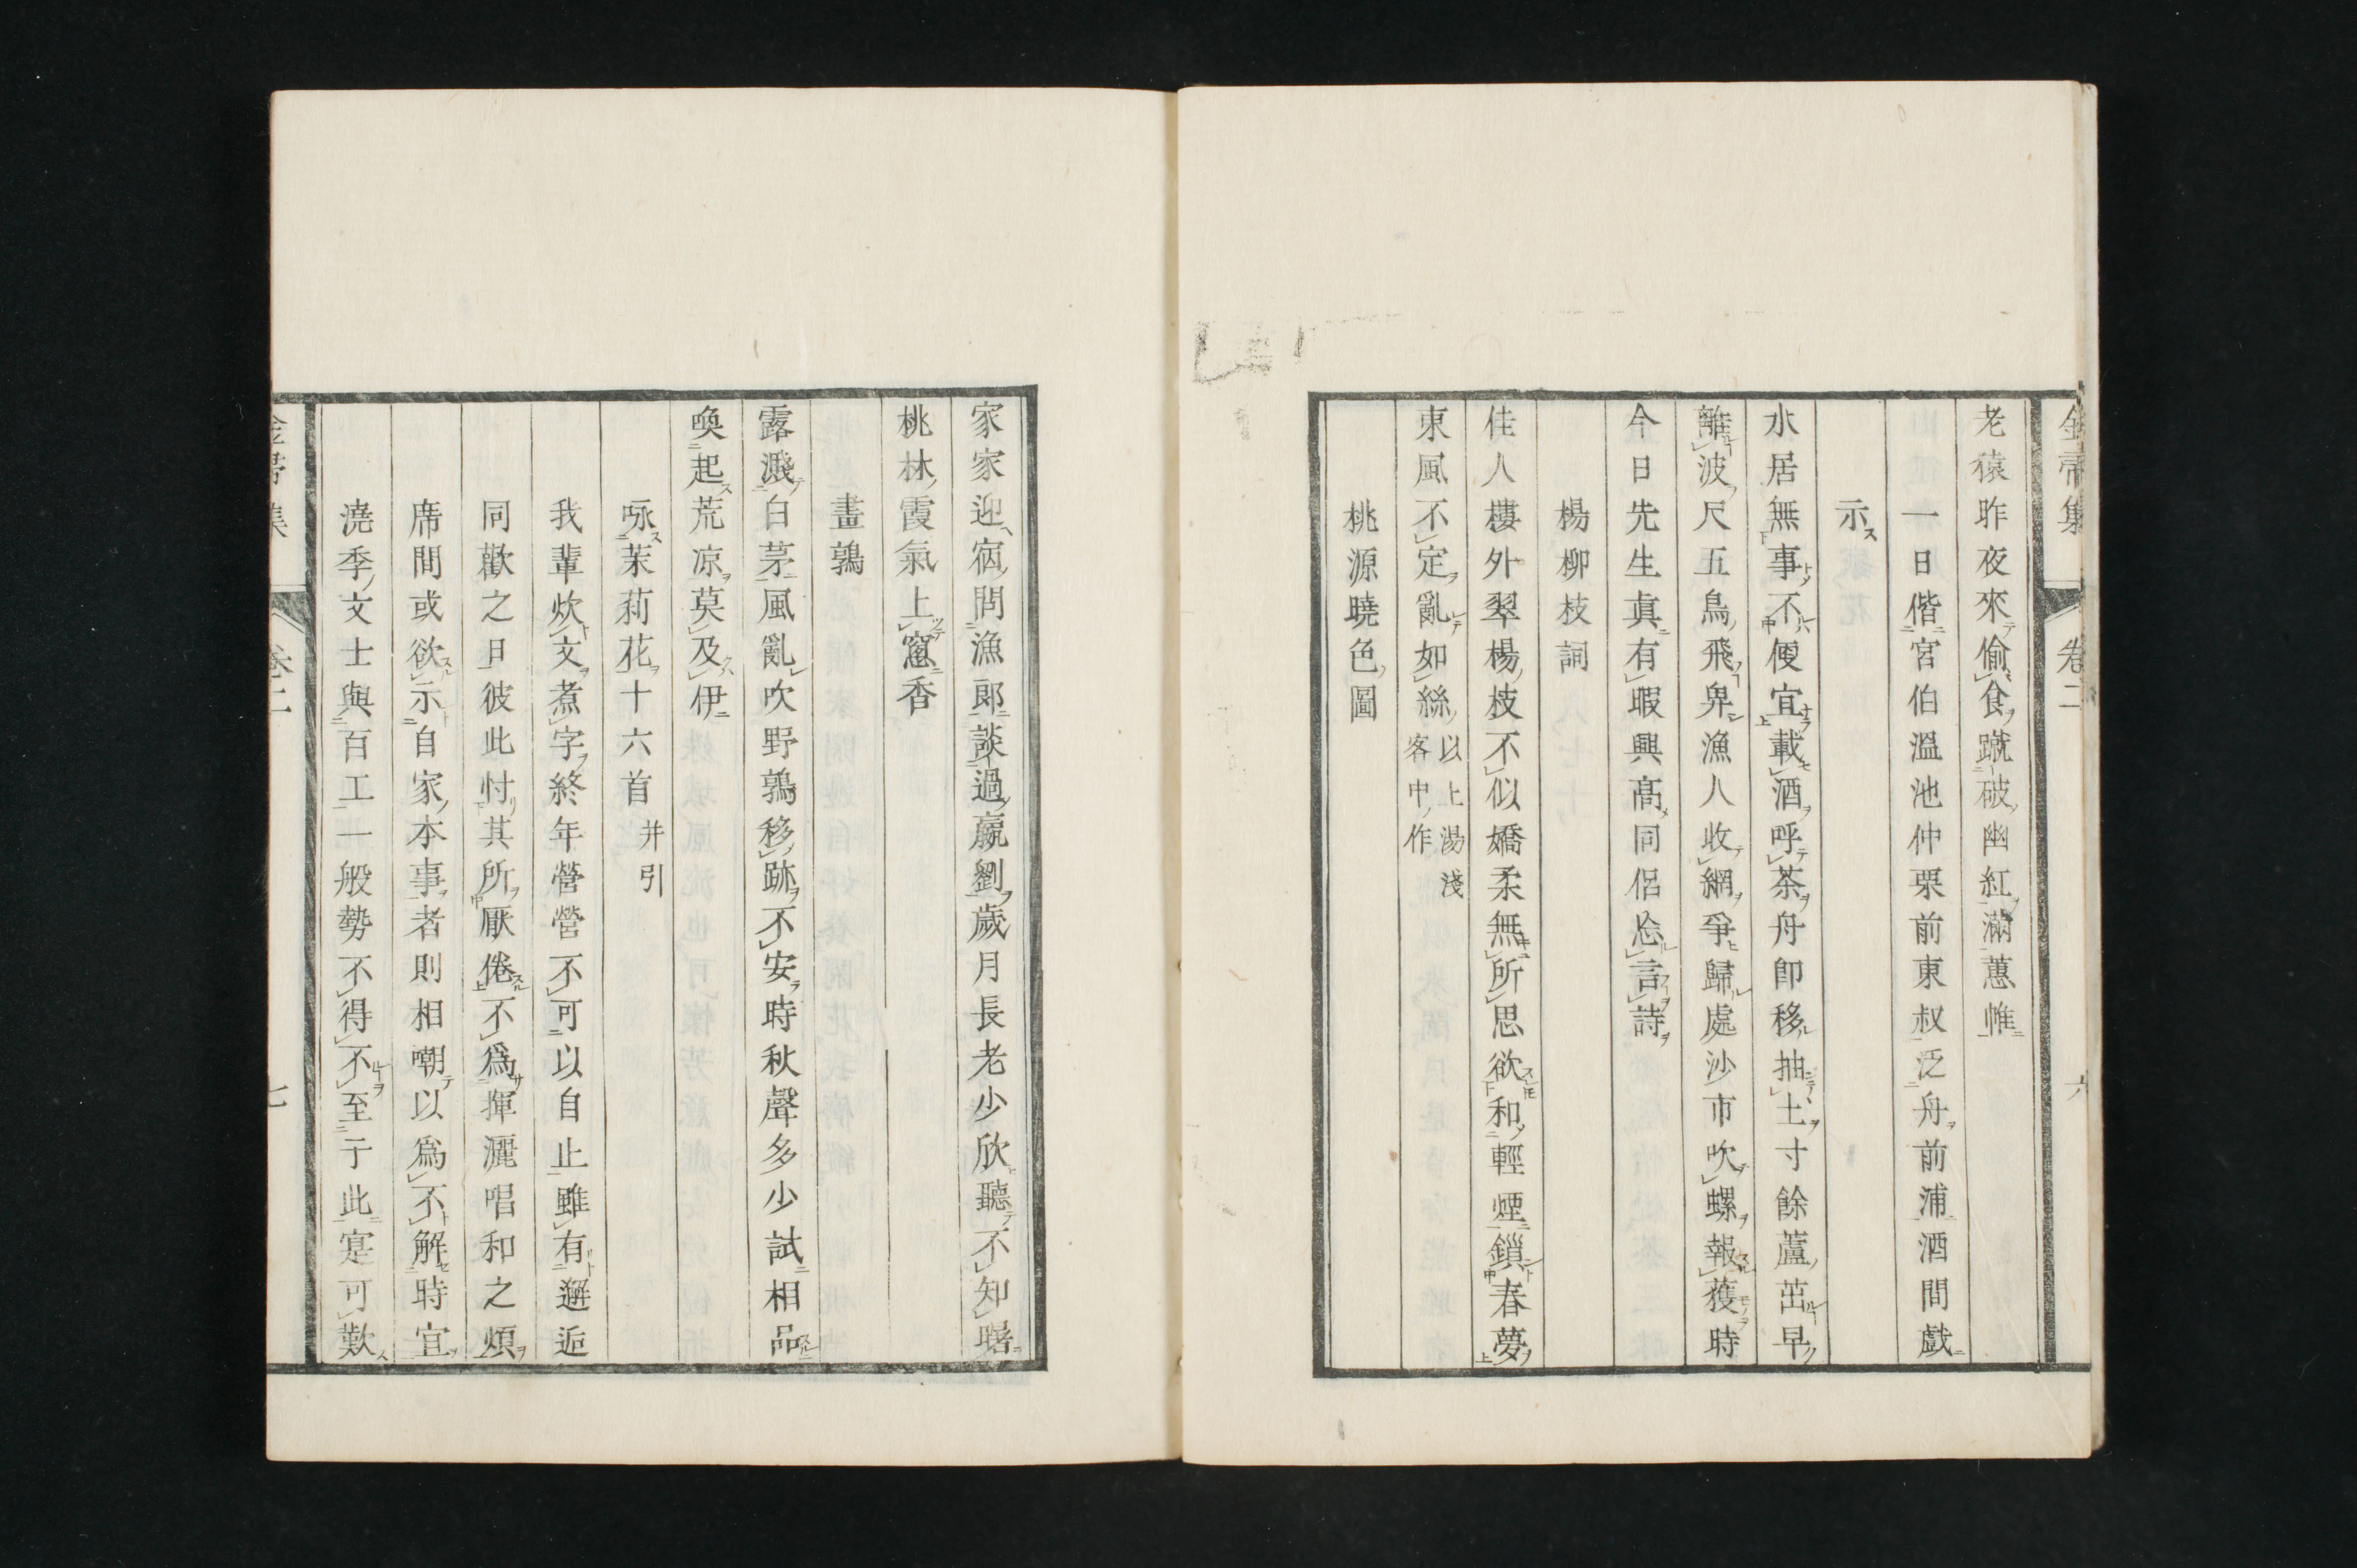 金帚集 卷二 六
老猿昨夜來偷食蹴破幽紅滿蕙帷
一日偕宮伯溫池仲栗前東叔泛舟前浦酒間戲
示
水居無事不便宜載酒呼茶舟卽移抽土寸餘蘆茁早
離波尺五鳥飛卑漁人收網爭歸處沙市吹螺報獲時
今日先生真有暇興髙同侶忩言詩
楊柳枝詞
佳人樓外翠楊枝不似嬌柔無所思欲和輕煙鎖春夢
東風不定亂如絲 以上湯淺
客中作
桃源曉色圖
家家迎宿問漁郎談過嬴劉歲月長老少欣聽不知曙
桃林霞氣上窻香
畫鶉
露濺白茅風亂吹野鶉移跡不安時秋聲多少試相品
喚起荒凉莫及伊
咏茉莉花十六首 并引
我輩炊文煮字終年營營不可以自止雖有邂逅
同歡之日彼此忖其所厭倦不爲揮灑唱和之煩
席間或欲示自家本事者則相嘲以爲不解時宜
澆季文士與百工一般勢不得不至于此寔可歎
金帚集 卷二 七